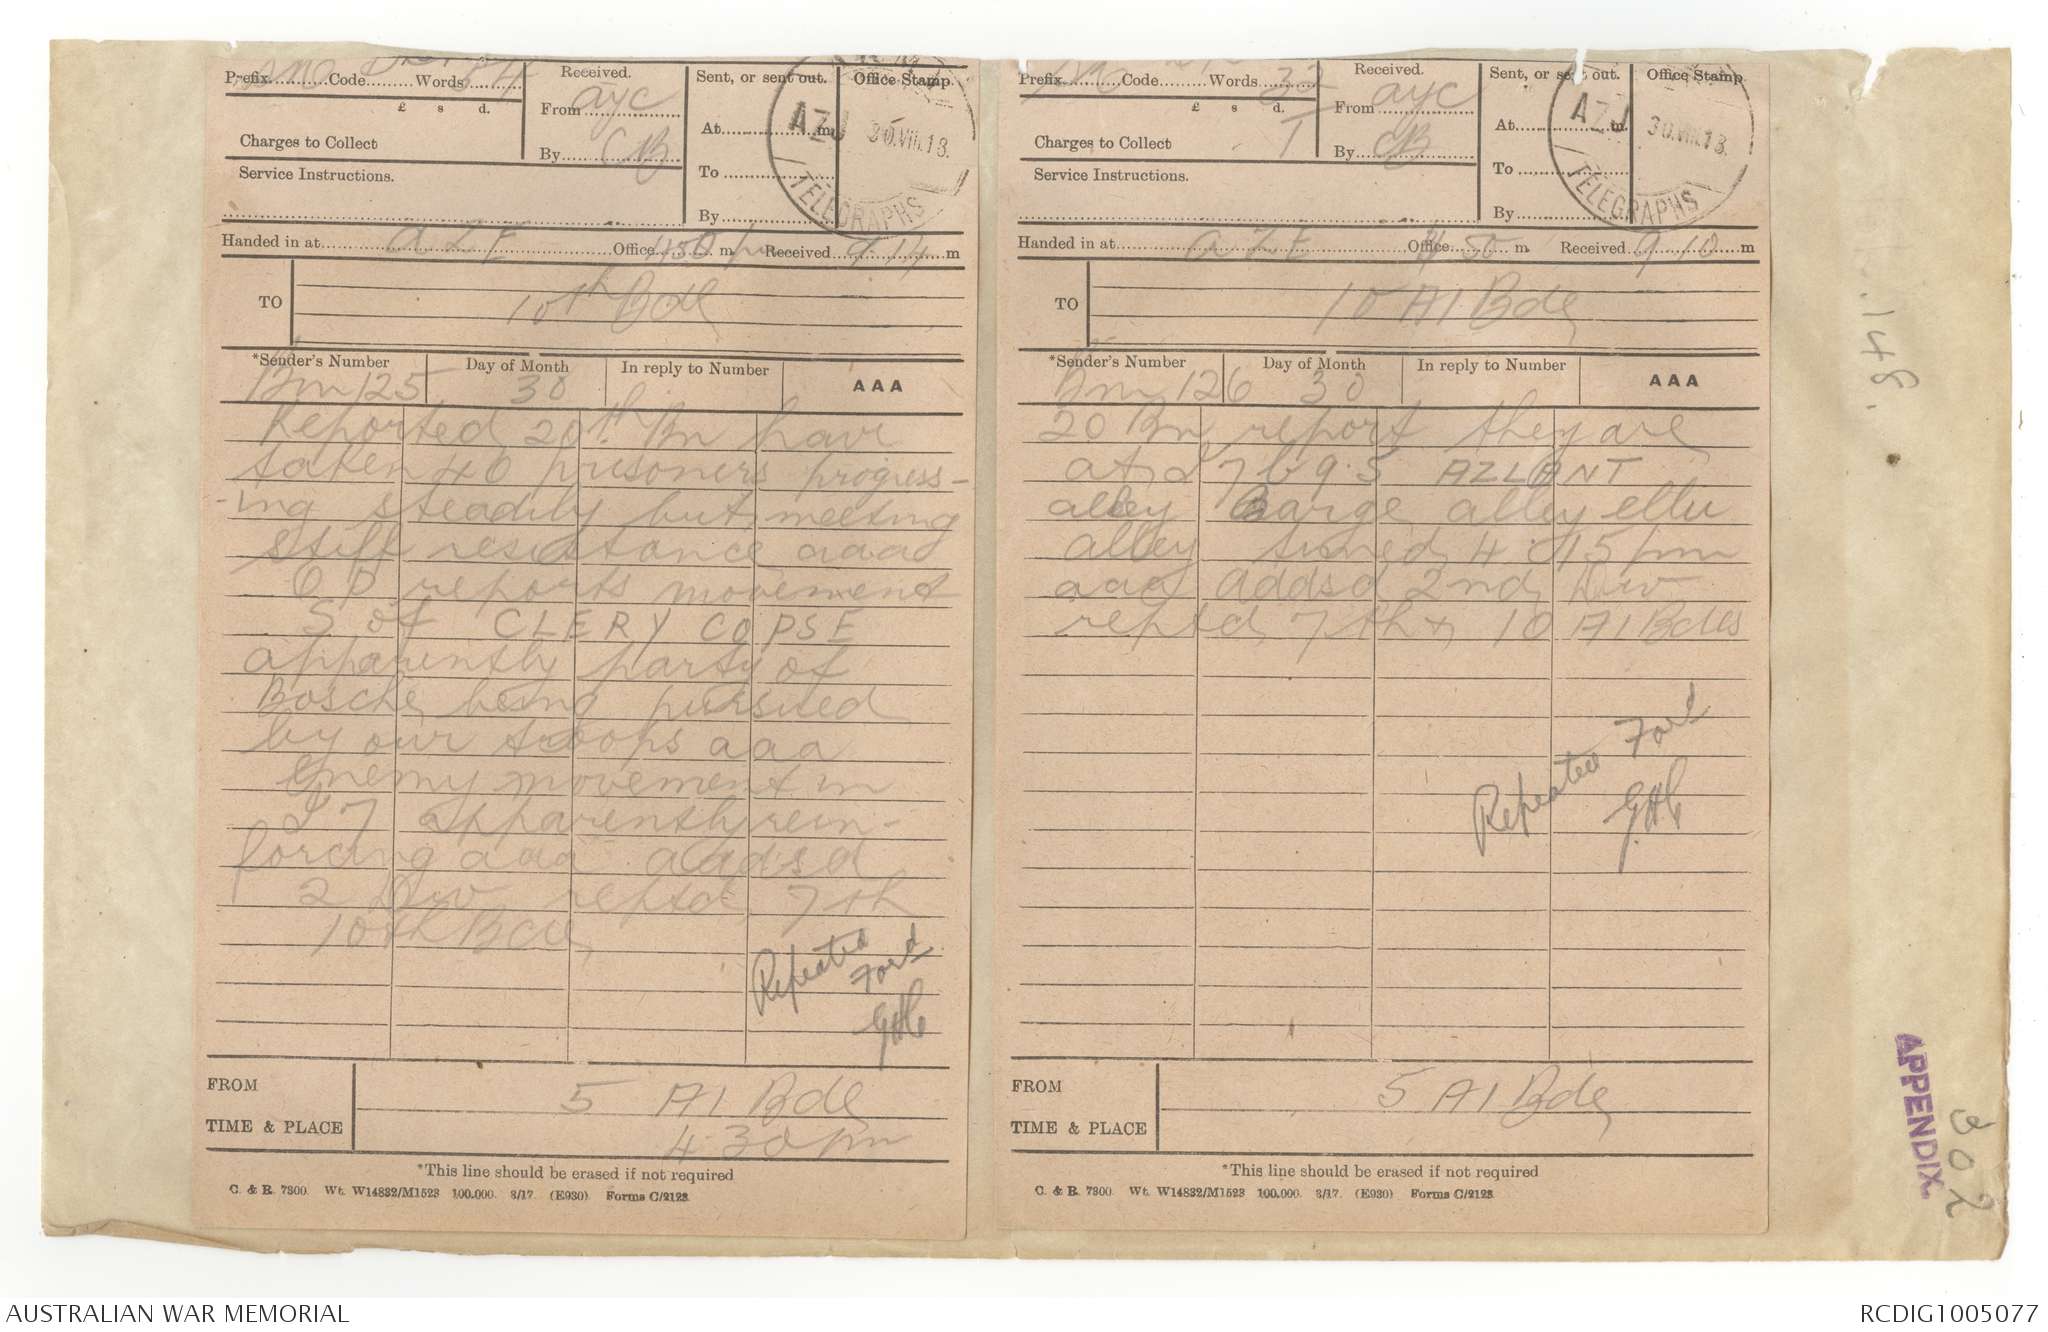 Prefix SM Code Words 54
Received.
From ayc
By CB
£ s d.
Charges to Collect
Service Instructions.
Sent, or sent out.
At m
To
By
Office Stamp
AZJ 30.VIII.18.
TELEGRAPHS
Handed in at AZE Office 450 pm Received 9 14 m
TO 10th Bde
*Sender's Number Day of Month In reply to Number AAA
Bm 125 30
Reported 20th Bn have
taken 40 prisoners progress-
-ing steadily but meeting
stiff resistance aaa
O P reports movement
S of CLERY COPSE
apparently party of
Bosche being pursued
by our troops aaa
Enemy movement in
I 7 apparently rein-
forcing aaa addsd
2 Div reptd 7th
10th Bde
Repeated
Ford
GHC
FROM 5 AI Bde
TIME & PLACE 4.30 pm
*This line should be erased if not required
C. & R. 7300. Wt. W14832/M1523 100,000. 3/17. (E930) Forms C/2123.
Prefix SM Code Words 32
Received.
From ayc
By CB
£ s d.
Charges to Collect T
Service Instructions.
Sent, or sent out.
At m
To
By
Office Stamp
AZJ 30.VIII.18.
TELEGRAPHS
Handed in at AZE Office 50 m Received 9 10 m
TO 10 AI Bde
*Sender's Number Day of Month In reply to Number AAA
Bm 126 30
20 Bn report they are
at 7 b 9.5 AZLANT
alley Barge alley
alley timed 4.15 pm
aaa addsd 2nd Div
reptd 7th & 10 AI Bdes
Repeated Ford
GHC
FROM 5 AI Bde
TIME & PLACE
*This line should be erased if not required
C. & R. 7300. Wt. W14832/M1523 100,000. 3/17. (E930) Forms C/2123.
148.
APPENDIX.
302
AUSTRALIAN WAR MEMORIAL
RCDIG1005077